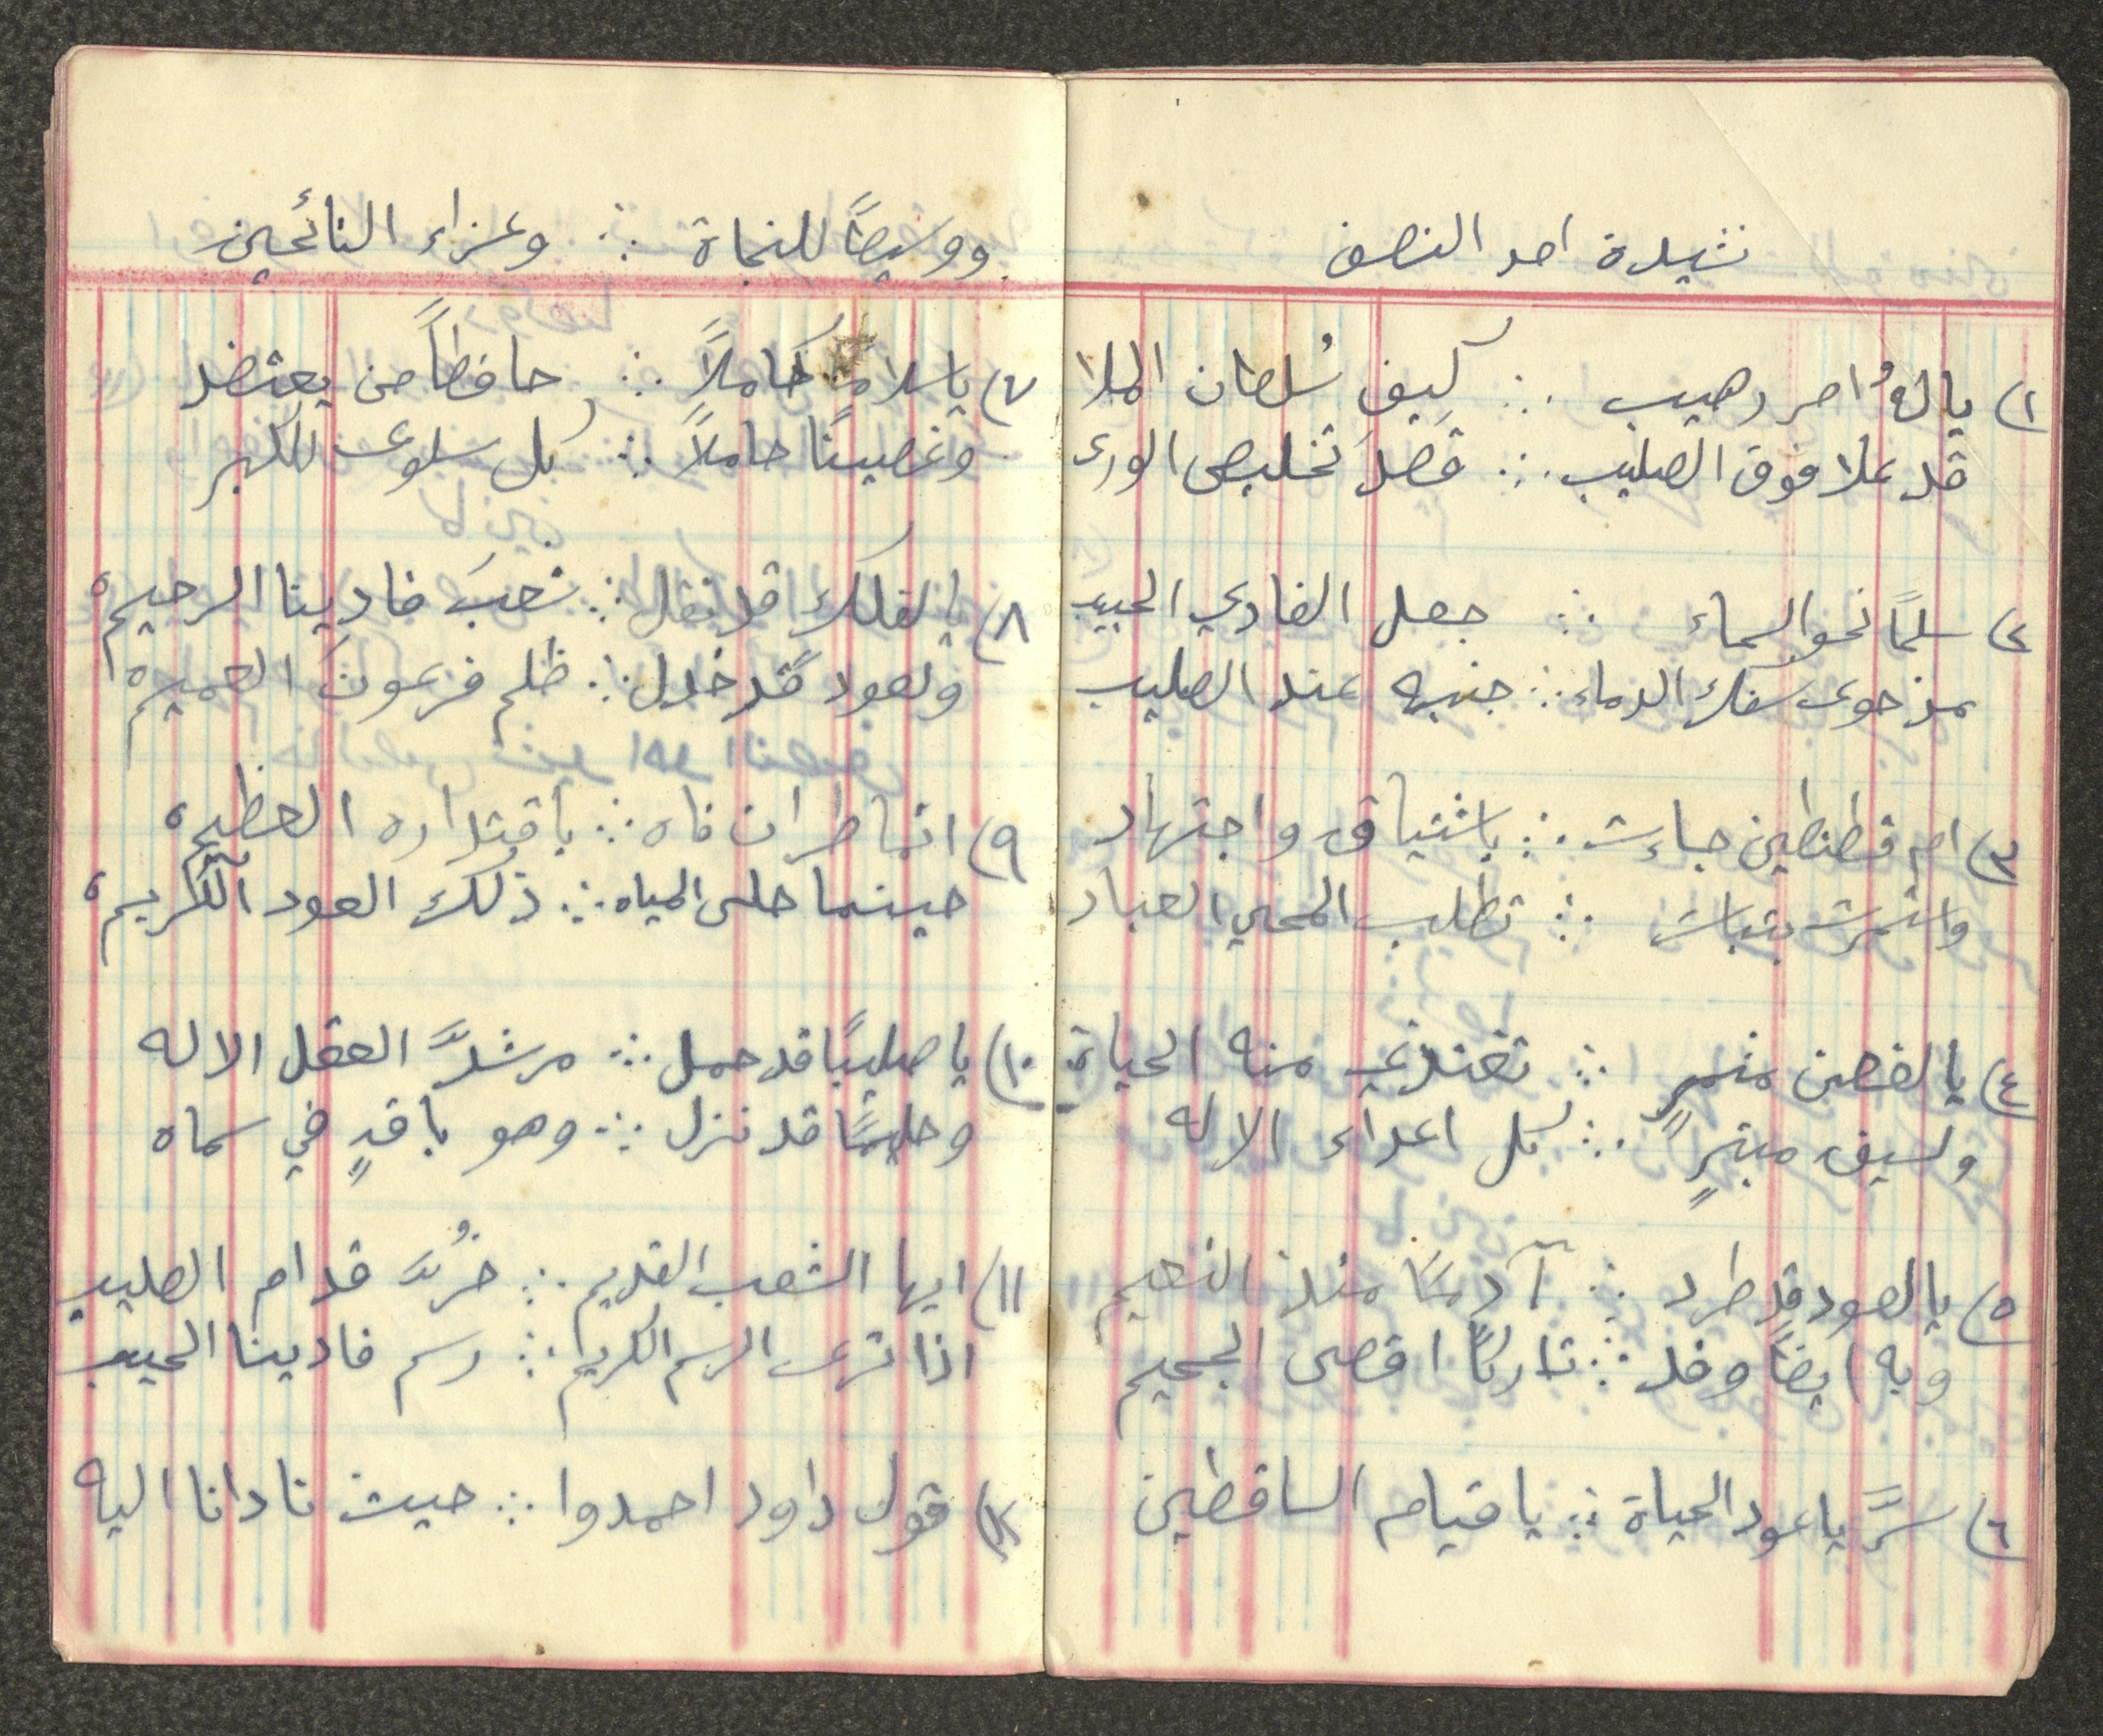 نشيدة احد النصف
١) يا لهُ امر رهيب ∴ كيف سُلطان الملا
قد علا فوق الصليب ∴ قصدَ تخليص الورى
٢) سلمًا نحو السماء ∴ جعل الفادي الحبيب
مذ حوى سفك الدماء ∴ جنبه عند الصليب
٣) ام قسطنطين جاءت ∴ باشتياق واجتهاد
واستمرت بثبات ∴ تطلب المحي العباد
٤) يا لغصن مثمرٍ ∴ تغتذي منه الحياة
ولسيف مبترٍ ∴ كل اعداء الاله
٥) يا لعود قد طرد ∴ آدمًا منذ النعيم
وبه ايضًا وفد ∴ تاركًا اقصى الجحيم
٦) سرَّ يا عود الحياة ∴ يا قيام الساقطين
ووسيطًا للنجاة ∴ وعزاء النائحين
٧) يا سلامًا كاملاً ∴ حافظاً من يعتضد
وغصينًا حاملاً ∴ كل سلوى للكبد
٨) يا لفلك قد نقل ∴ شعبَ فادينا الرحيم
ولعود قد خذل ∴ ظلم فرعونَ العميم
٩) انما طران فاه ∴ باقتداره العظيم
حينما حلى المياه ∴ ذلك العود الكريم
١٠) يا صليبًا قد حمل ∴ مرشدًّ العقل الاله
وحليمًا قد نزل ∴ وهو باقٍ في سماه
١١) ايها الشعب القديم ∴ خُرَّ قدام الصليب
اذا ترى الرسم الكريم ∴ رسم فادينا الحبيب
١٢) قول داود احمدوا ∴ حيث نادانا اليه